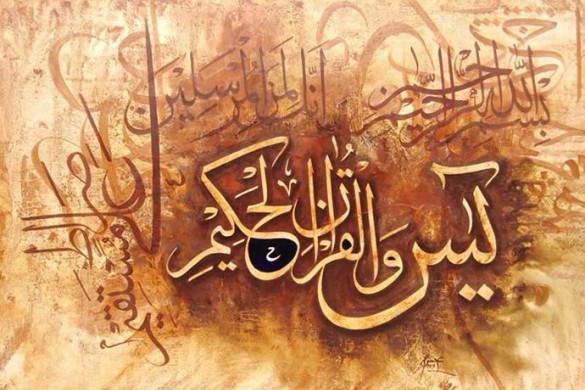 بسم الله الرحمن الرحيم
يس والقرآن الحكيم
إنك لمن المرسلين
على صراط مستقيم